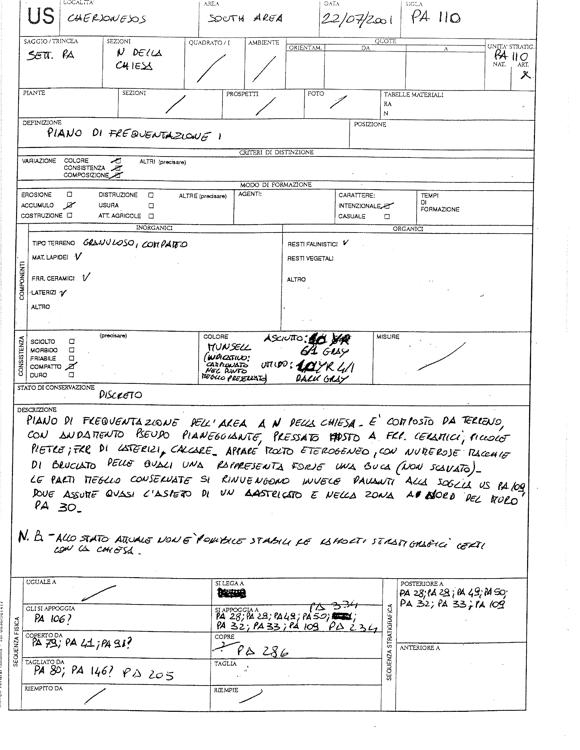 US
LOCALITA'
CHERSONESOS
AREA
SOUTH AREA
DATA
22/07/2001
SIGLA
PA 110
SAGGIO / TRINCEA
SETT. PA
SEZIONI
N DELLA
CHIESA
QUADRATO / I
AMBIENTE
QUOTE
ORIENTAM.
DA
A
UNITA' STRATIG.
PA 110
NAT. ART.
X
PIANTE
SEZIONI
PROSPETTI
FOTO
TABELLE MATERIALI
RA
N
DEFINIZIONE
PIANO DI FREQUENTAZIONE 1
POSIZIONE
CRITERI DI DISTINZIONE
VARIAZIONE COLORE
CONSISTENZA
COMPOSIZIONE
ALTRI (precisare)
MODO DI FORMAZIONE
EROSIONE
ACCUMULO
COSTRUZIONE
DISTRUZIONE
USURA
ATT. AGRICOLE
ALTRE (precisare)
AGENTI:
CARATTERE:
INTENZIONALE
CASUALE
TEMPI
DI
FORMAZIONE
COMPONENTI
INORGANICI
TIPO TERRENO GRANULOSO, COMPATTO
MAT. LAPIDEI V
FRR. CERAMICI V
LATERIZI V
ALTRO
ORGANICI
RESTI FAUNISTICI V
RESTI VEGETALI
ALTRO
CONSISTENZA
(precisare)
SCIOLTO
MORBIDO
FRIABILE
COMPATTO
DURO
COLORE
MUNSELL
(INDICATIVO:
CAMPIONATO
NEL PUNTO
MEGLIO PRESERVATO)
ASCIUTTO: 10 YR
6/1 GRAY
UMIDO: 10 YR 4/1
DARK GRAY
MISURE
STATO DI CONSERVAZIONE
DISCRETO
DESCRIZIONE
PIANO DI FREQUENTAZIONE DELL'AREA A N DELLA CHIESA. E' COMPOSTO DA TERRENO,
CON ANDAMENTO PSEUDO PIANEGGIANTE, PRESSATO MISTO A FRR. CERAMICI, PICCOLE
PIETRE, FRR DI LATERIZI, CALCARE. APPARE MOLTO ETEROGENEO, CON NUMEROSE MACCHIE
DI BRUCIATO DELLE QUALI UNA RAPPRESENTA FORSE UNA BUCA (NON SCAVATO).
LE PARTI MEGLIO CONSERVATE SI RINVENGONO INVECE DAVANTI ALLA SOGLIA US PA 109
DOVE ASSUME QUASI L'ASPETTO DI UN LASTRICATO E NELLA ZONA A NORD DEL MURO
PA 30.
N.B. - ALLO STATO ATTUALE NON E' POSSIBILE STABILIRE RAPPORTI STRATIGRAFICI CERTI
CON LA CHIESA.
SEQUENZA FISICA
UGUALE A
SI LEGA A
GLI SI APPOGGIA
PA 106?
SI APPOGGIA A PA 334
PA 28; PA 29; PA 49; PA 50;
PA 32; PA 33; PA 109 PA 234
COPERTO DA
PA 79; PA 41; PA 91?
COPRE
? PA 286
TAGLIATO DA
PA 80; PA 146? PA 205
TAGLIA
RIEMPITO DA
RIEMPIE
SEQUENZA STRATIGRAFICA
POSTERIORE A
PA 28; PA 29; PA 49; PA 50;
PA 32; PA 33; PA 109
ANTERIORE A